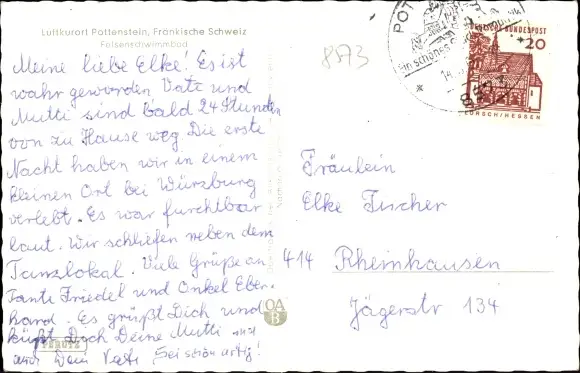 Luftkurort Pottenstein, Fränkische Schweiz
Felsenschwimmbad
Meine liebe Elke! Es ist
wahr geworden Vati und
Mutti sind bald 24 Stunden
von zu Hause weg. Die erste
Nacht haben wir in einem
kleinen Ort bei Würzburg
verlebt. Es war furchtbar
laut. Wir schliefen neben dem
Tanzlokal. Viele Grüße an
Tante Friedel und Onkel Eber-
hard. Es grüßt Dich und
küßt Dich Deine Mutti und
und Dein Vati. Sei schön artig!
PERUTZ
OA
B
8873
POT
ein schönes
DEUTSCHE BUNDESPOST
20
LORSCH/HESSEN
Fräulein
Elke Fischer
414 Rheinhausen
Jägerstr 134